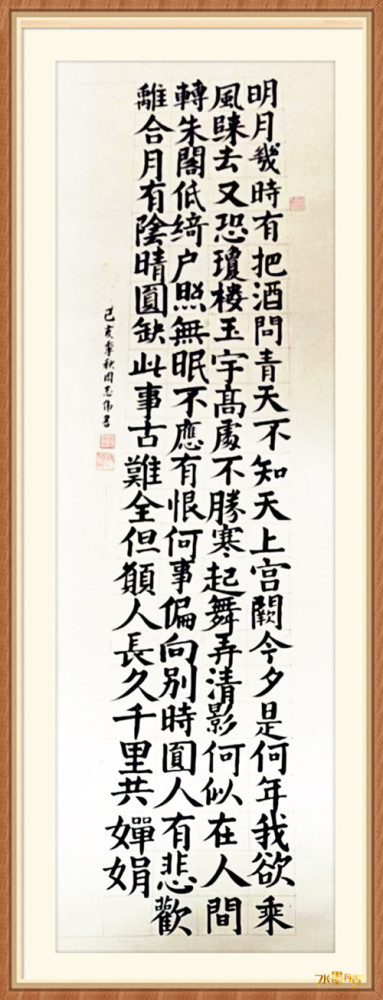 明月幾時有把酒問青天不知天上宫闕今夕是何年我欲乘
風歸去又恐瓊樓玉宇高處不勝寒起舞弄清影何似在人間
轉朱閣低綺户照無眠不應有恨何事偏向别時圓人有悲歡
離合月有陰晴圓缺此事古難全但願人長久千里共嬋娟
己亥季秋周志伟書